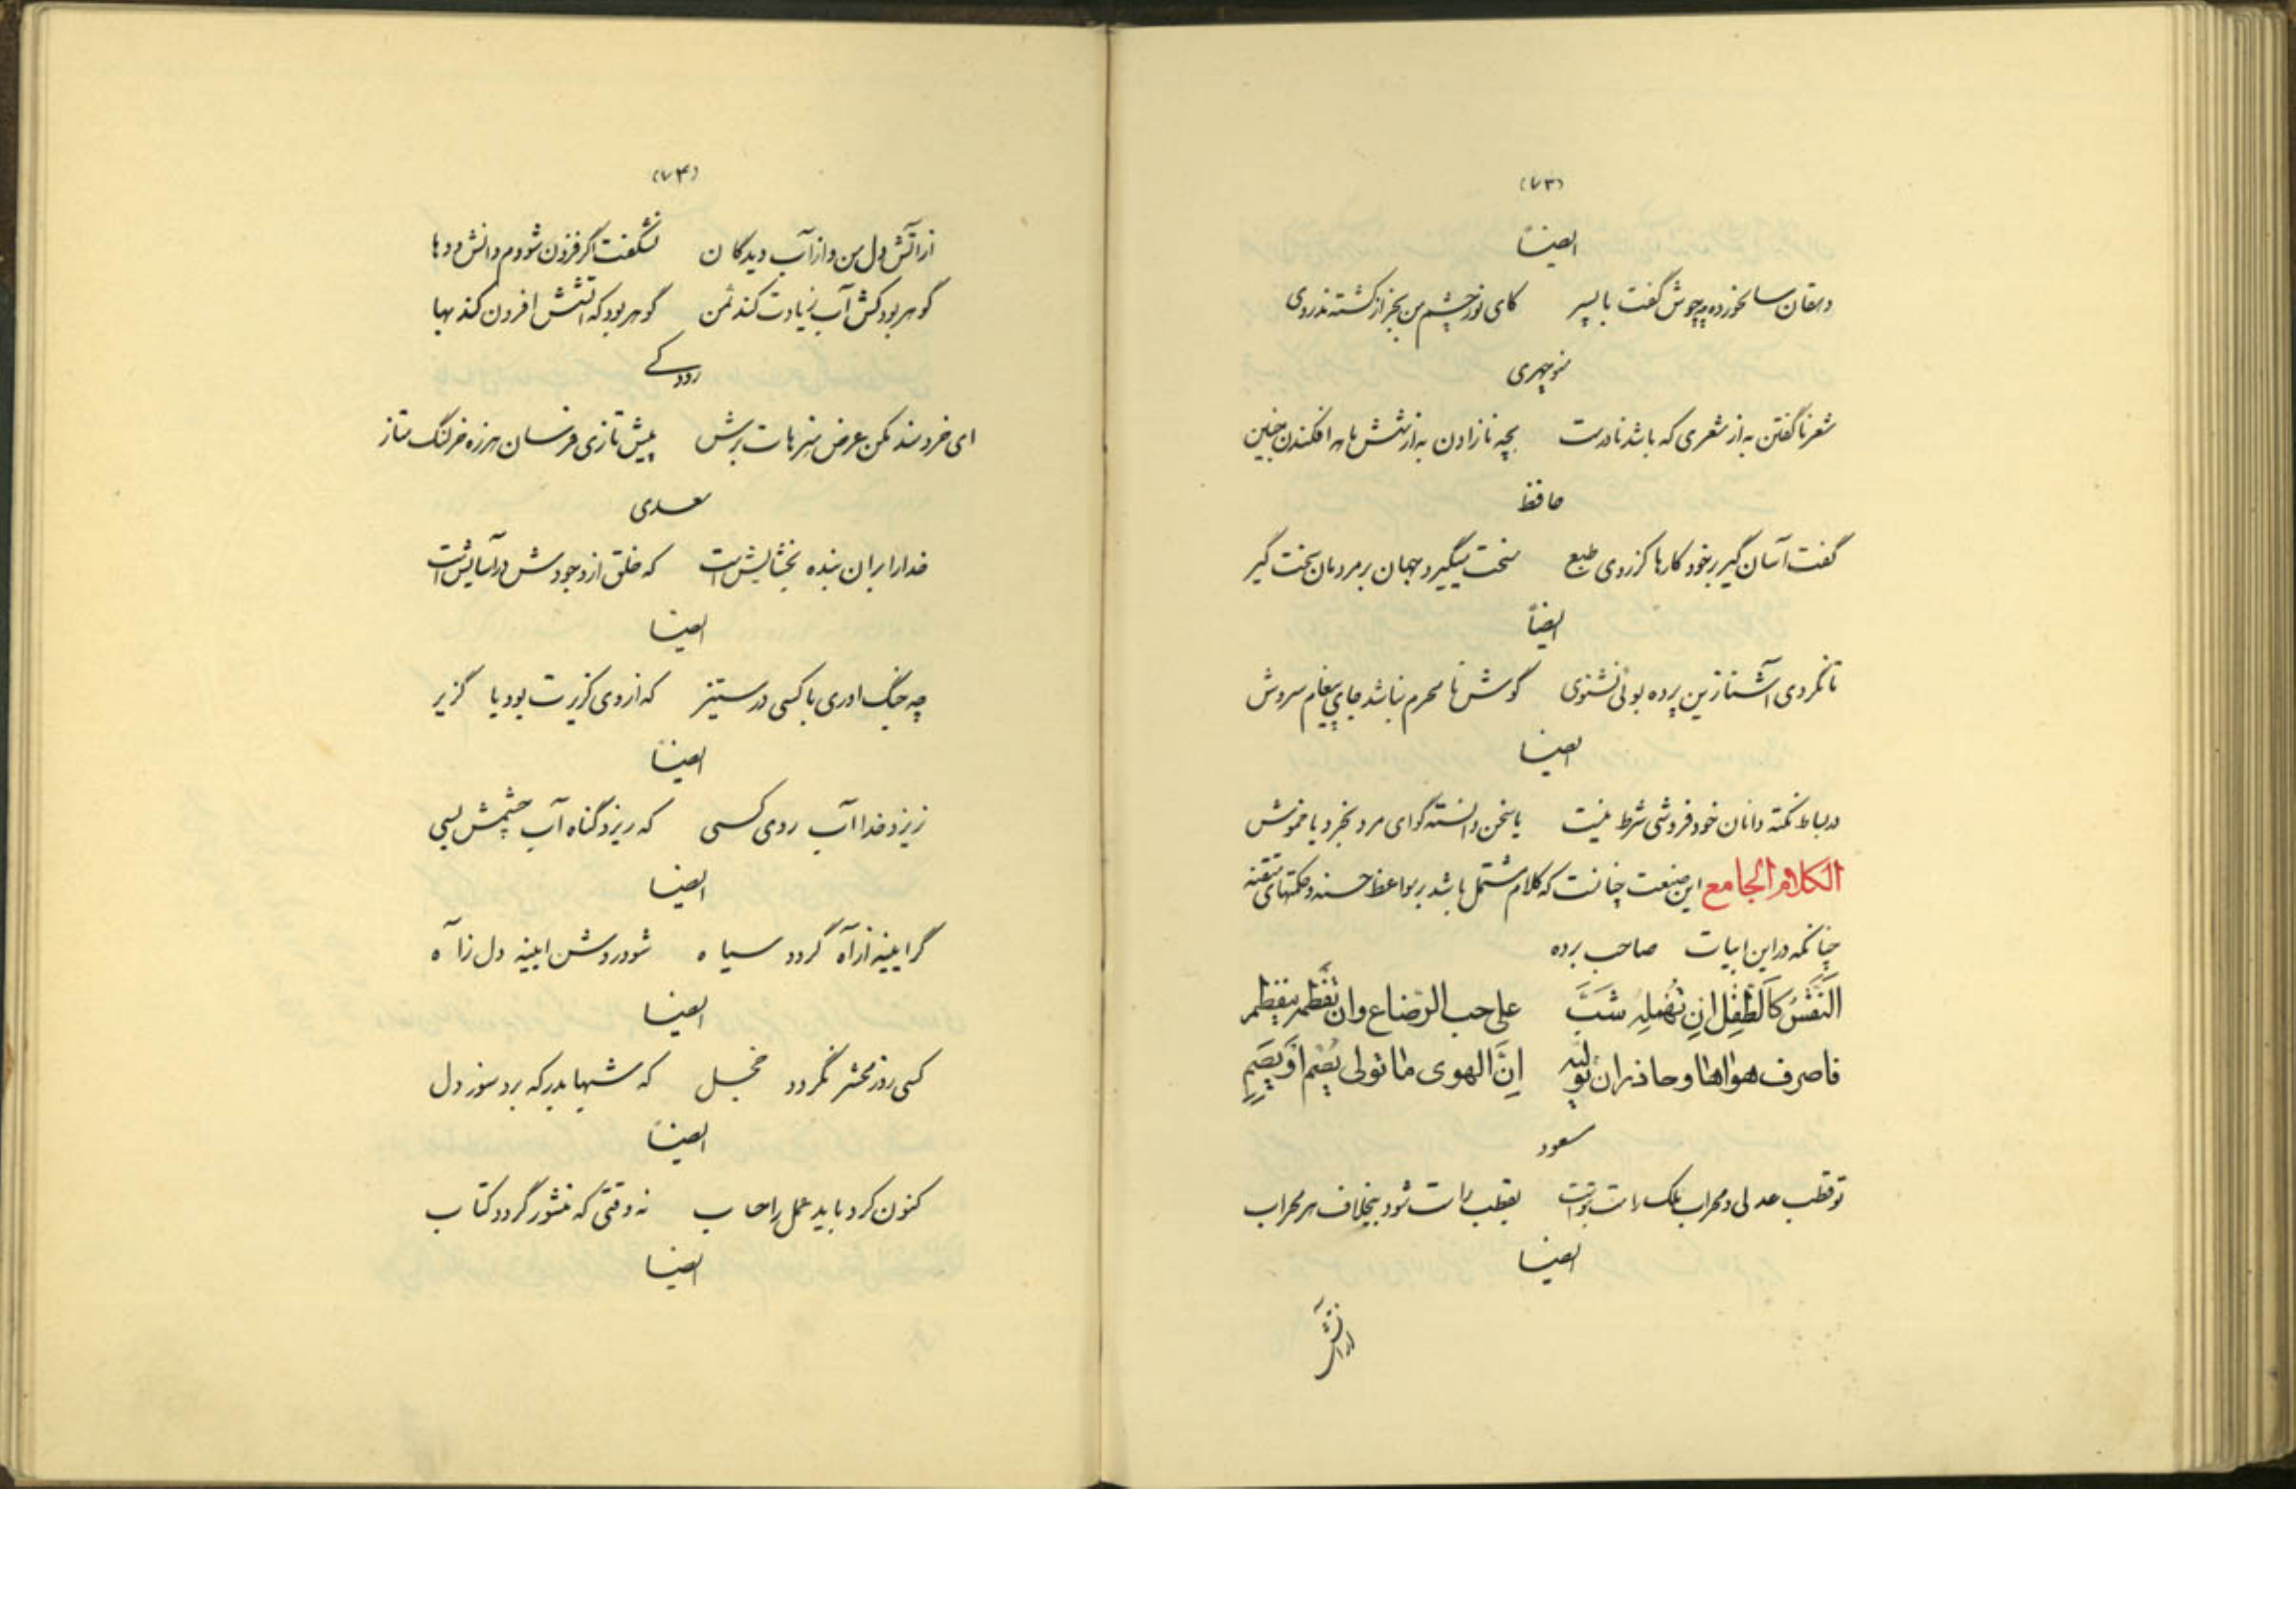 (۷۳)
ایضاً
دهقان سالخورده چه خوش گفت با پسر کای نور چشم من بجز از کشته ندروی
منوچهری
شعر ناگفتن به از شعری که باشد نادرست بچه نازادن به از ششماهه افکندن جنین
حافظ
گفت آسان گیر بر خود کارها کز روی طبع سخت میگیرد جهان بر مردمان سخت گیر
ایضاً
تا نگردی آشنا زین پرده بوئی نشنوی گوش نامحرم نباشد جای پیغام سروش
ایضا
در بساط نکته دانان خود فروشی شرط نیست یا سخن دانسته گو ای مرد بخرد یا خموش
الکلام الجامع این صنعت چنانست که کلام مشتمل باشد بر مواعظ حسنه و حکمتهای متقنه
چنانکه در این ابیات صاحب برده
النَّفْسُ کَالطِّفْلِ اِن تُهْمِلْهُ شَبَّ علی حب الرّضاع وان تَفْطِمْهُ ینفطم
فاصرف هواها وحاذر ان تُوَلِّیَه اِنَّ الهوی ما تولی یُصْمِ اَوْ یَصِمِ
مسعود
تو قطب عدلی و محراب ملک راست بتوست بقطب راست شود بیخلاف هر محراب
ایضا
از آتش
(۷۴)
از آتش دل من و از آب دیدگان نشکفت اگر فزون شودم دانش و دها
گوهر بود کش آب زیادت کند ثمن گوهر بود که آتشش افزون کند بها
رودکی
ای خردمند مکن عرض هنرهات برش پیش تازی فرسان هرزه خر لنگ متاز
سعدی
خدا را بر آن بنده بخشایش است که خلق از وجودش در آسایش است
ایضا
چه جنگ اوری با کسی در ستیز که از وی گزیرت بود یا گزیر
ایضاً
نریزد خدا آب روی کسی که ریزد گناه آب چشمش بسی
ایضا
گر ایینه از آه گردد سیاه شود روشن ایینه دل ز آه
ایضا
کسی روز محشر نگردد خجل که شبها بدرگه برد سوز دل
ایضاً
کنون کرد باید عمل را حساب نه وقتی که منشور گردد کتاب
ایضا